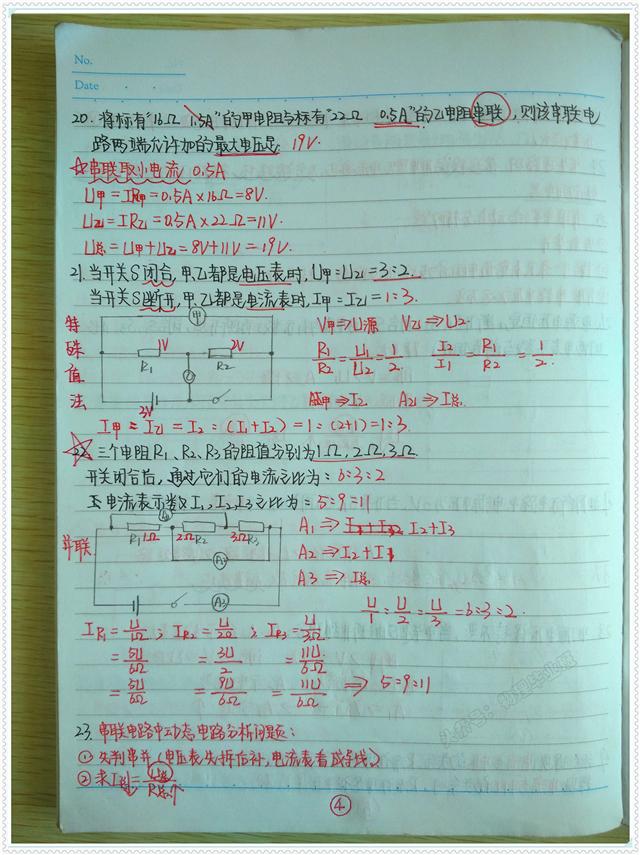 No.
Date
20. 将标有"16Ω 1.5A"的甲电阻与标有"22Ω 0.5A"的乙电阻串联，则该串联电
路两端允许加的最大电压是 19V.
☆串联取小电流 0.5A
U甲=IR甲=0.5A×16Ω=8V.
U乙=IR乙=0.5A×22Ω=11V.
U总=U甲+U乙=8V+11V=19V.
21. 当开关S闭合，甲、乙都是电压表时，U甲=U乙=3:2.
当开关S断开，甲、乙都是电流表时，I甲=I乙=1:3.
特殊值法
甲
1V 2V
R1 R2
3V
V甲⇒U源 V乙⇒U2
R1/R2=U1/U2=1/2. I2/I1=R1/R2=1/2.
A甲⇒I2 A乙⇒I总
I甲=I乙=I2=(I1+I2)=1=(2+1)=1:3.
☆22. 三个电阻R1、R2、R3的阻值分别为1Ω，2Ω，3Ω.
开关闭合后，通过它们的电流之比为：6:3:2
电流表示数I1,I2,I3之比为：5:9:11
并联
R1 1Ω 2Ω R2 3Ω R3
A2
A3
A1⇒I2+I3
A2⇒I2+I1
A3⇒I总
U/1=U/2=U/3=6:3:2.
IR1=U/1Ω；IR2=U/2Ω；IR3=U/3Ω
=5U/6Ω =3U/2 =11U/6Ω
=5U/6Ω =9U/6Ω =11U/6Ω ⇒5:9:11
23. 串联电路中动态电路分析问题：
① 先判串并(电压表先拆后补，电流表看成导线.)
② 求I总=U总/R总
④